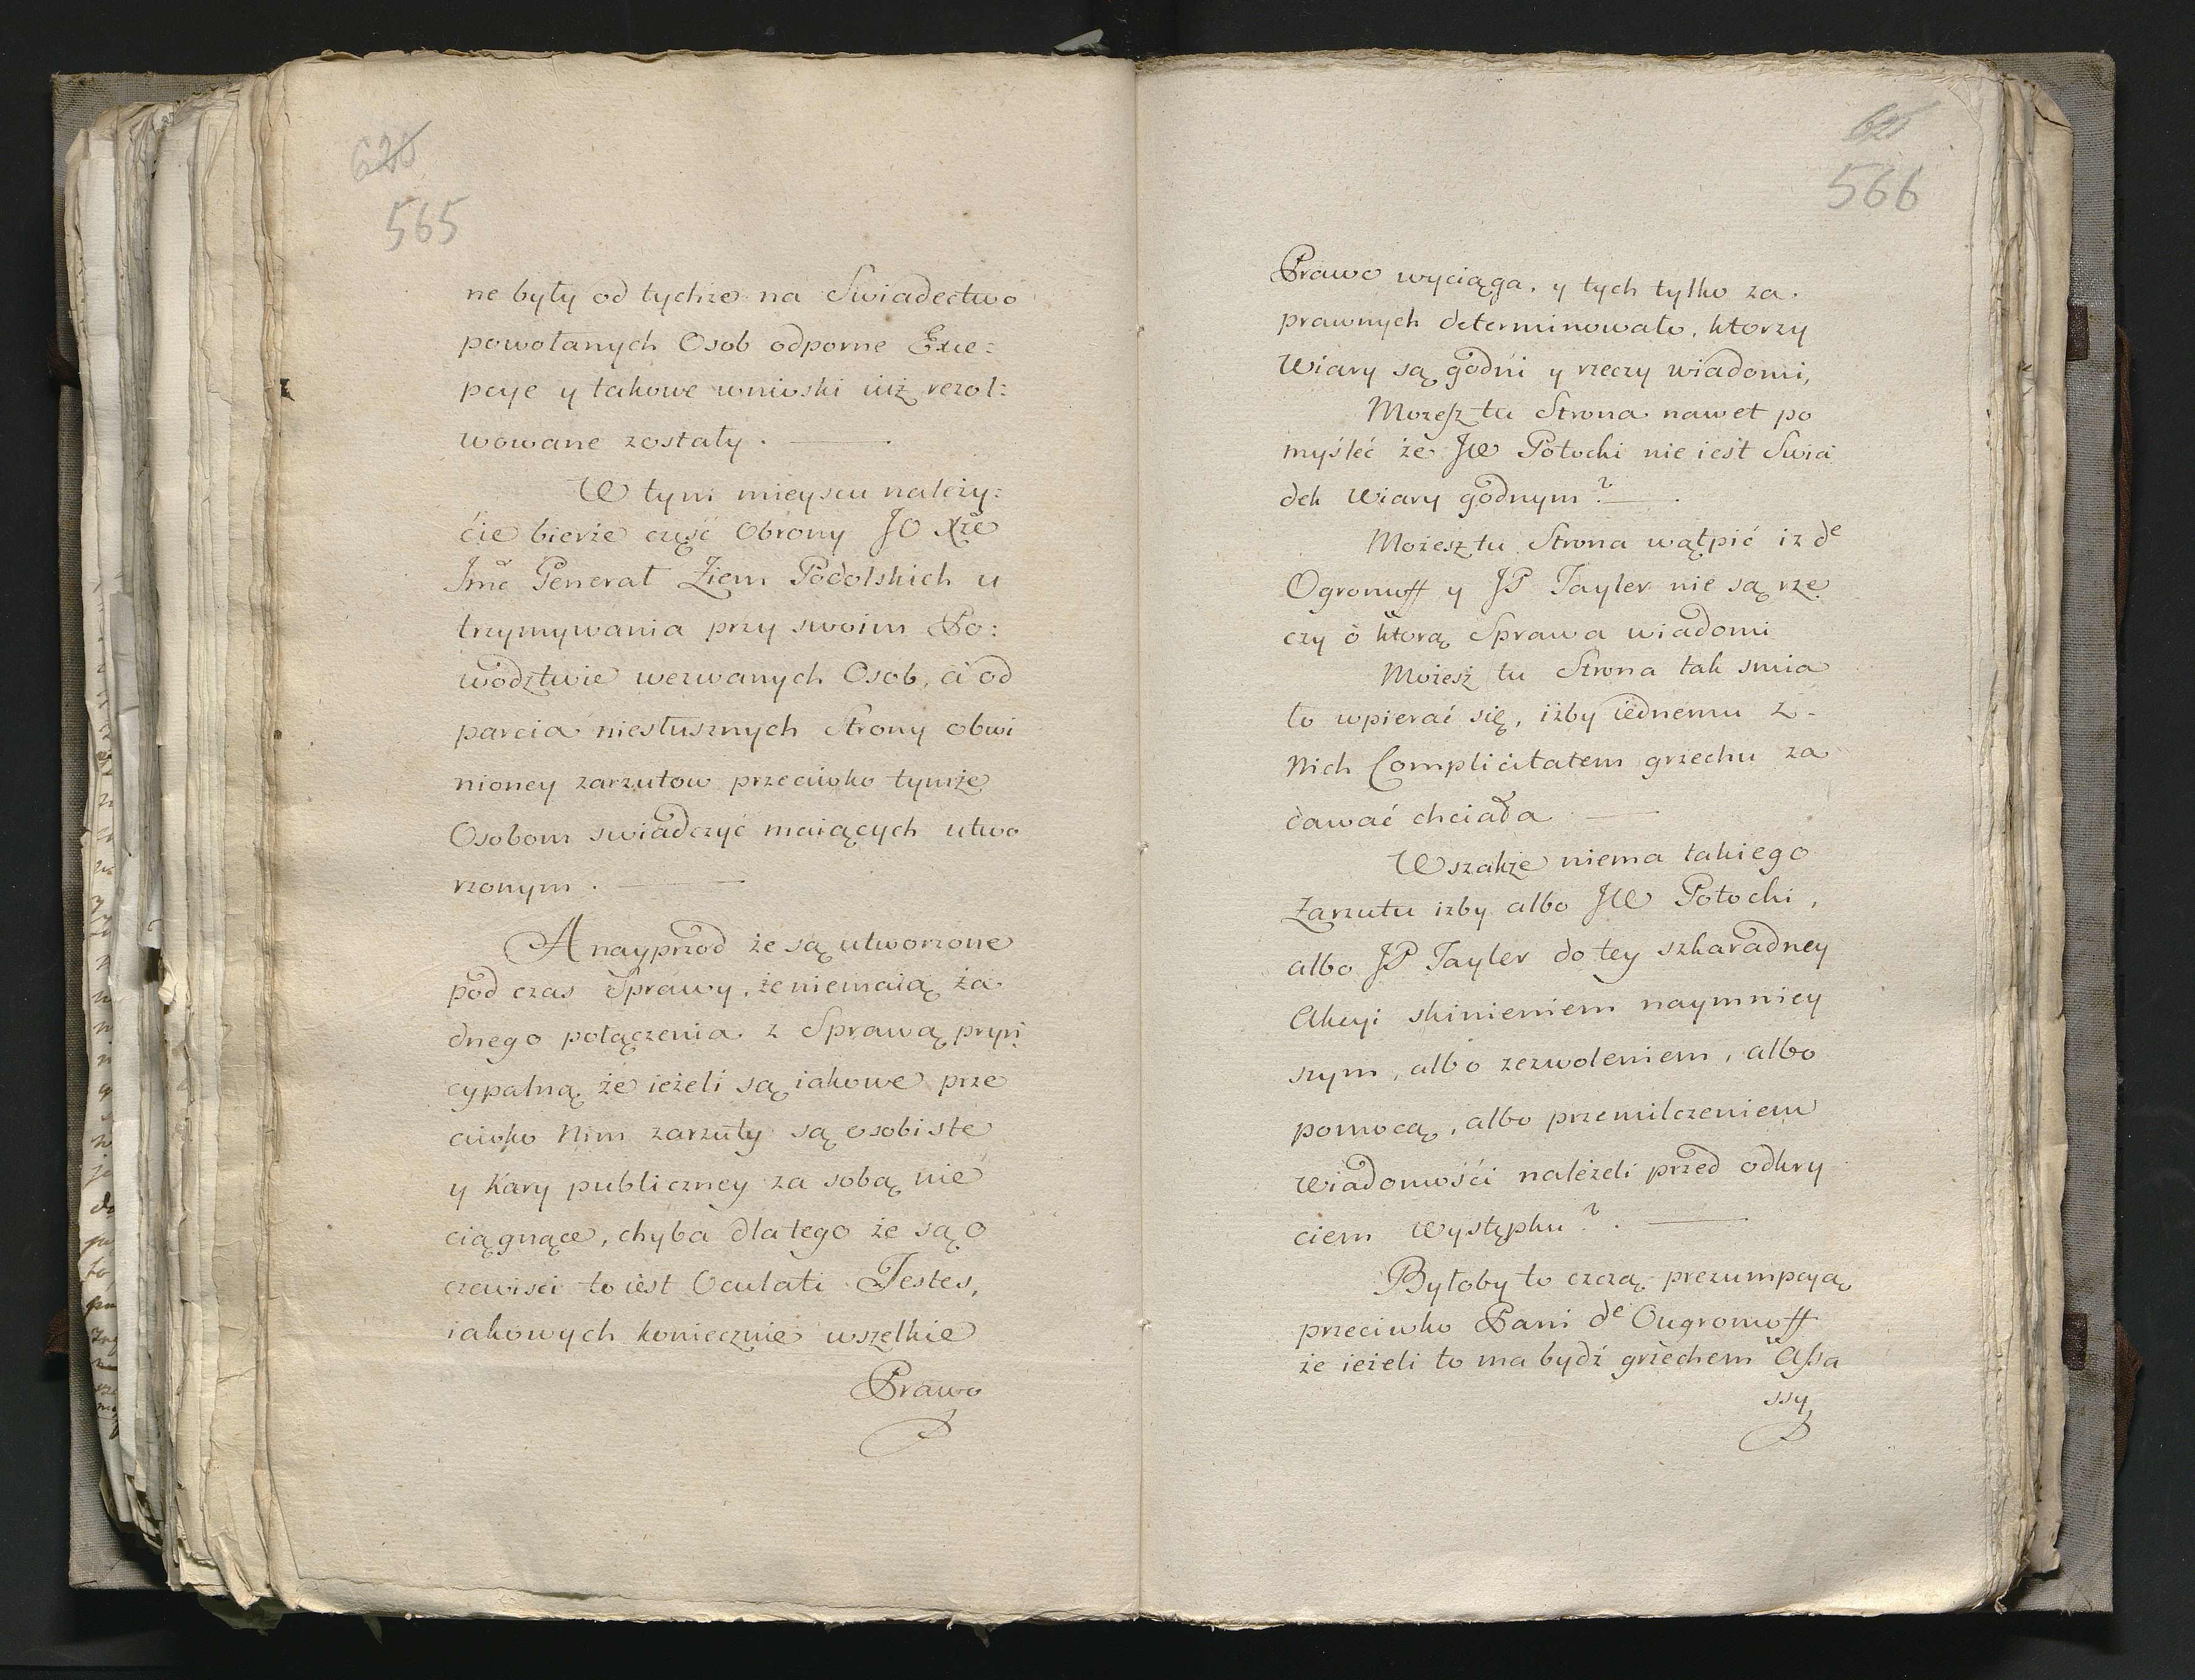 620
565
ne były od tychże na Swiadectwo
powołanych Osob odporne Exce=
pcye y takowe wnioski iuż rezol=
wowane zostały.
W tym mieyscu należy=
cie bierze część Obrony JO Xże
Jmć Generał Ziem Podolskich u
trzymywania przy swoim Po:
wodztwie wezwanych Osob, a od
parcia niesłusznych Strony obwi
nioney zarzutow przeciwko tymże
Osobom swiadczyć maiących utwo
rzonym.
A nayprzod że są utworzone
pod czas Sprawy, że niemaią ża
dnego połączenia z Sprawą pryn
cypalną, że ieżeli są iakowe prze
ciwko Nim zarzuty są osobiste
y Kary publiczney za sobą nie
ciągnące, chyba dlatego że są o
czewisci to iest Oculati Testes,
iakowych koniecznie wszelkie
Prawo
566
Prawo wyciąga, y tych tylko za
prawnych determinowało, ktorzy
Wiary są godni y rzeczy wiadomi,
Mozesz tu Strona nawet po
myśleć że JW Potocki nie iest Swia
dek Wiary godnym?
Możesz tu Strona wątpić iz de
Ogromoff y JP Tayler nie są rze
czy o ktorą Sprawa wiadomi
Możesz tu Strona tak smia
ło wpierać się, iżby iednemu z
Nich Complicitatem grzechu za
dawać chciała
Wszakże niema takiego
Zarzutu izby albo JW Potocki,
albo JP Tayler do tey szkaradney
Akcyi skinieniem naymniey
szym, albo zezwoleniem, albo
pomocą, albo przemilczeniem
Wiadomości należeli przed odkry
ciem Występku?
Byłoby to czczą prezumpcyą
przeciwko Pani de Ougromoff
że ieżeli to ma bydź grzechem Assa
ssy